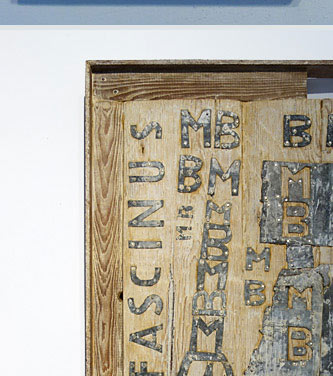 FASCINUS
MB
B
BM
M
B
M
B
BM
M
M
M
B
M
B